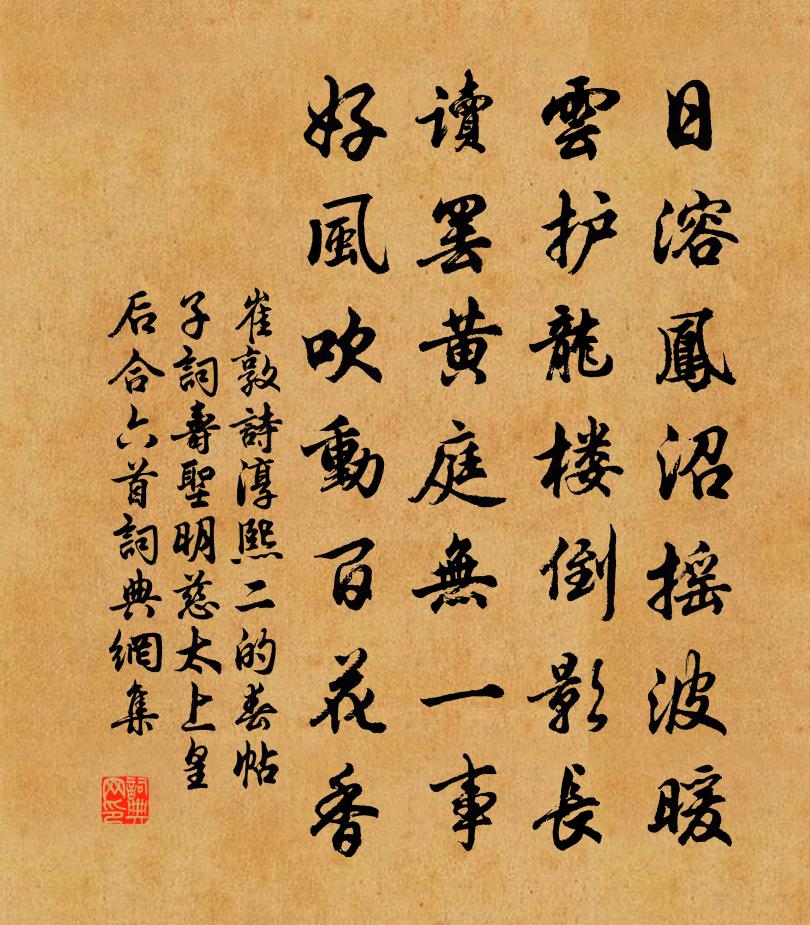 日溶鳳沼摇波暖
雲护龍楼倒影長
讀罢黄庭無一事
好風吹動百花香
崔敦詩淳熙二的春帖
子詞壽聖明慈太上皇
后合六首詞典網集
詞典
网印